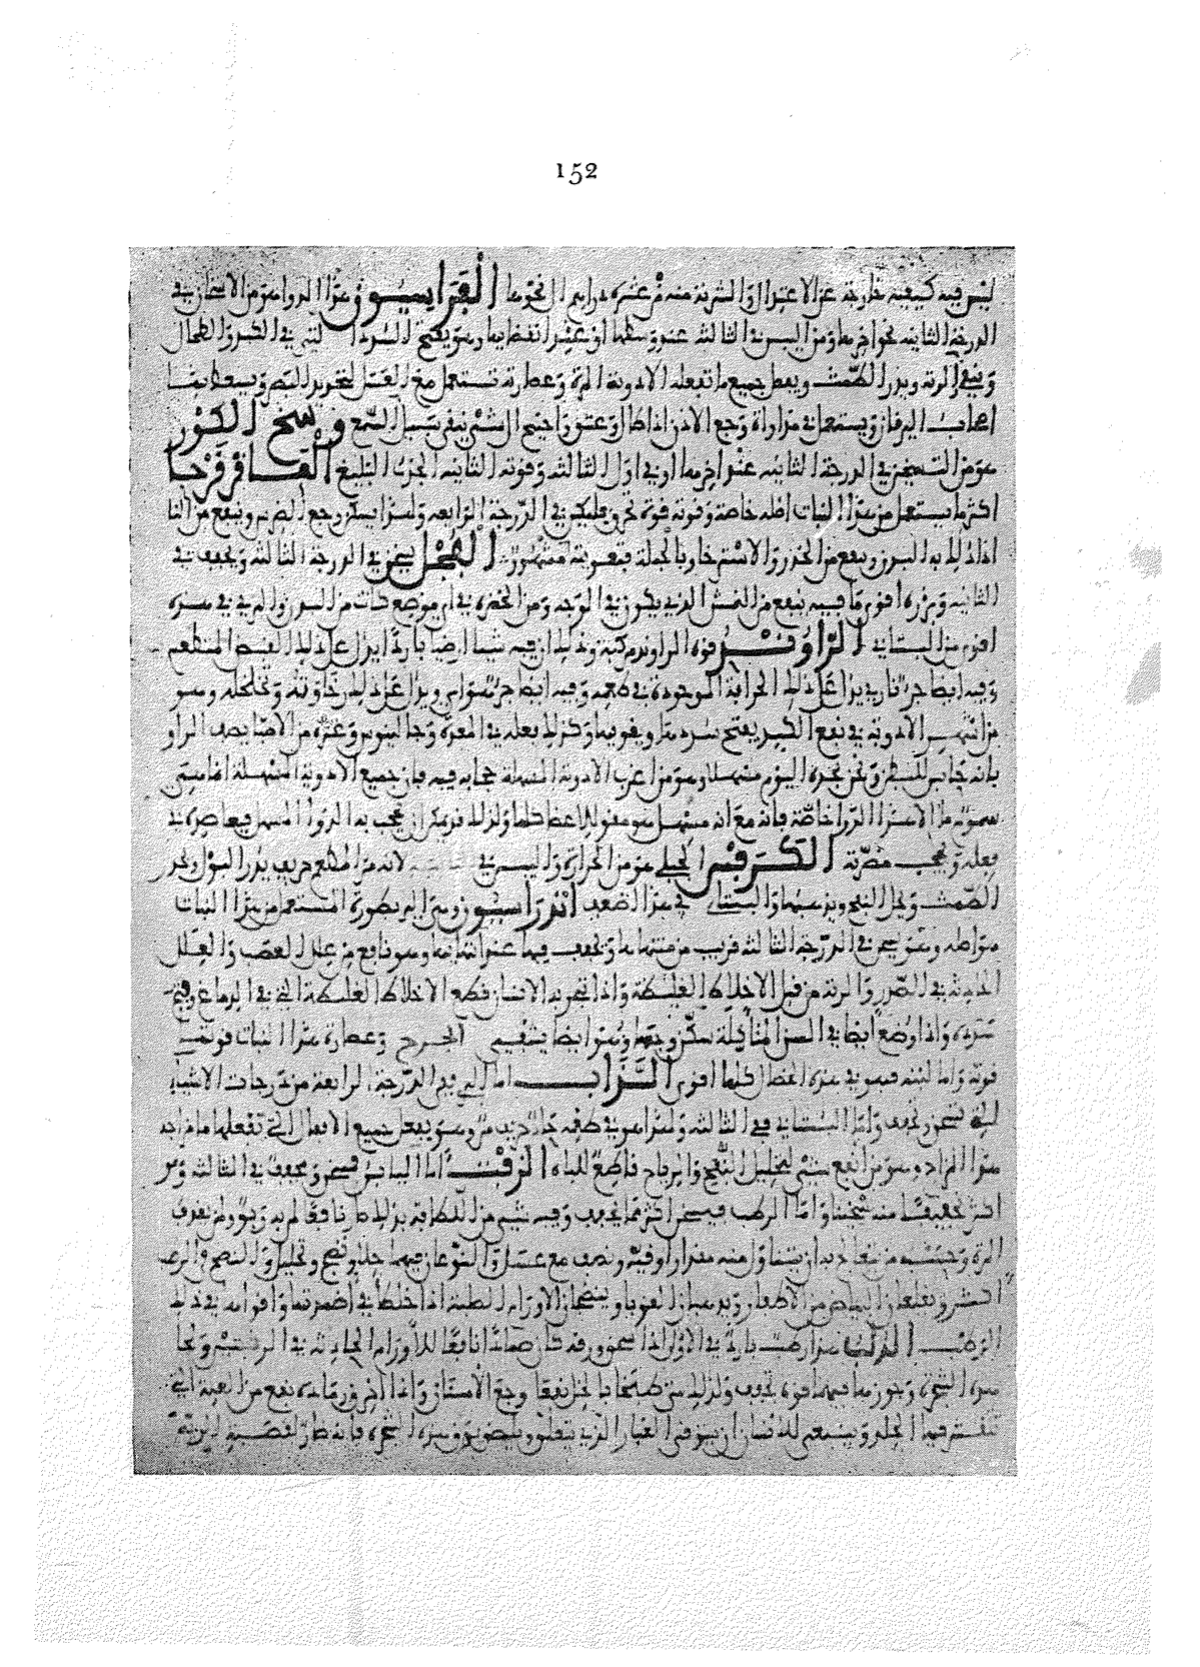 152
ليس فيه كيفية خارجة عن الاعتدال والشربة منه من عشرة دراهم الى نحوها الفراسيون هذا الدواء هو من الاسخان في
الدرجة الثانية نحو اخرها ومن اليبس في الثالثة عند وسطها او عند انقضايها وهو يفتح السدد التي في الكبد والطحال
وينقي الرية ويدر الطمث ويفعل جميع ما تفعله الادوية المرة وعصارته تستعمل مع العسل لتحديد البصر ويسعط بها
اصحاب اليرقان ويستعمل في مداواة وجع الاذن اذا طال وعتق واحتيج الى شيء ينقي سبيل السمع وسخ الكور
هو من التسخين في الدرجة الثانية عند اخرها او في اول الثالثة وقوته الثانية الجذب البليغ العاقر قرحا
اكثر ما يستعمل من هذا النبات اصله خاصة وقوته قوة تحرق فليكن في الدرجة الرابعة ولهذا يسكن وجع الضرس وينفع من
اذا دلك به البدن وينفع من الخدر والاسترخا وبالجملة فتقويته مشهورة الفجل يسخن في الدرجة الثالثة ويجفف في
الثانية وبزره اقوى ما فيه ينفع من النمش الذي يكون في الوجه ومن الخضرة في اي موضع كانت من البدن والبري في هذه
اقوى من البستاني الراوند قوة الراوند مركبة وذلك ان فيه شيا ارضيا باردا يدل على ذلك القبض
وفيه ايضا جزء ناري يدل على ذلك الحرافة الموجودة في طعمه وفيه ايضا جزء هوايي ويدل على ذلك رخاوته وتخلخله وهو
من اشهر الادوية في نفع الكبد يفتح سددها ويقويها وكذلك يفعله في المعدة وجالينوس وغيره من الاطبا يصف الراو
بانه حابس للبطن ونحن نجده اليوم مسهلا وهو من اعجب الادوية المسهلة فانه فيه فان جميع الادوية المسهلة
سموم ما الا هذا الدوا خاصة فانه مع انه مسهل هو مقو للاعضا ولذلك قد يمكن ان يحجب به الدواء المسهل فيعاضده في
فعله ويحجب مضرته الكرفس الجبلي هو من الحرارة واليبس في لانه مر الطعم حريف يدر البول ويدر
الطمث ويحل النفخ وبزرهما والبستاني في هذا اضعف اندراسيون ويسمى اليربطورة المستعمل من هذا النبات
هو اصله وهو يسخن في الدرجة الثالثة قريب من منتهاها ويجفف فيها عند ابتدايها وهو نافع من علل العصب والعلل
الحادثة في الصدر والرية من قبل الاخلاط الغليظة واذا تبخر به الانسان قطع الاخلاط الغليظة التي في الدماغ وفتح
سدده واذا وضع ايضا في السن المتاكلة سكن وجعها وهو ايضا يشفي الجرح وعصارة هذا النبات قوتها
قوته واما لبنه فهو في هذه الخصال كلها اقوى السذاب اما البري ففي الدرجة الرابعة من درجات الاشياء
التي تسخن وتجفف واما البستاني ففي الثالثة ولهذا هو في طعمه حاد حريف مر وهو يفعل جميع الافعال التي تفعلها ما مزاجه
هذا المزاج وهو من انفع شيء لتحليل النفخ والرياح قاطع للباه الزفت اما اليابس فيسخن ويجفف في الثالثة وهو
اكثر تجفيفا منه تسخينا واما الرطب فيسخن اكثر مما يجفف وفيه شيء من اللطافة بذلك صار نافعا لمن به ربو ولمن يقذف
المدة وحسبه من يتعالج به ان يتناول منه مقدار اوقية ونصف مع عسل والنوعان فيهما جلاء ونضج وتحليل والنضج في الرطب
اكثر ويقلعان البياض من الاظفار ويذهبان القوبا وينضجان الاورام الصلبة اذا خلطا في اضمدتها واقواهما في ذلك
الرطب الدلب مزاج رطب بارد في الاولى اذا سحق ورقه كان ضمادا نافعا للاورام الحادثة في الركبتين ولحا
هذه الشجرة وجوزها فيهما قوة تجفف ولذلك متى طبخا بالخل نفعا وجع الاسنان واذا احرق ورمادها ينفع من العلة التي
تتقشر فيها الجلد وينبغي للانسان ان يتوقى الغبار الذي يتعلق بورق هذه الشجرة فانه ضار لقصبة الرية